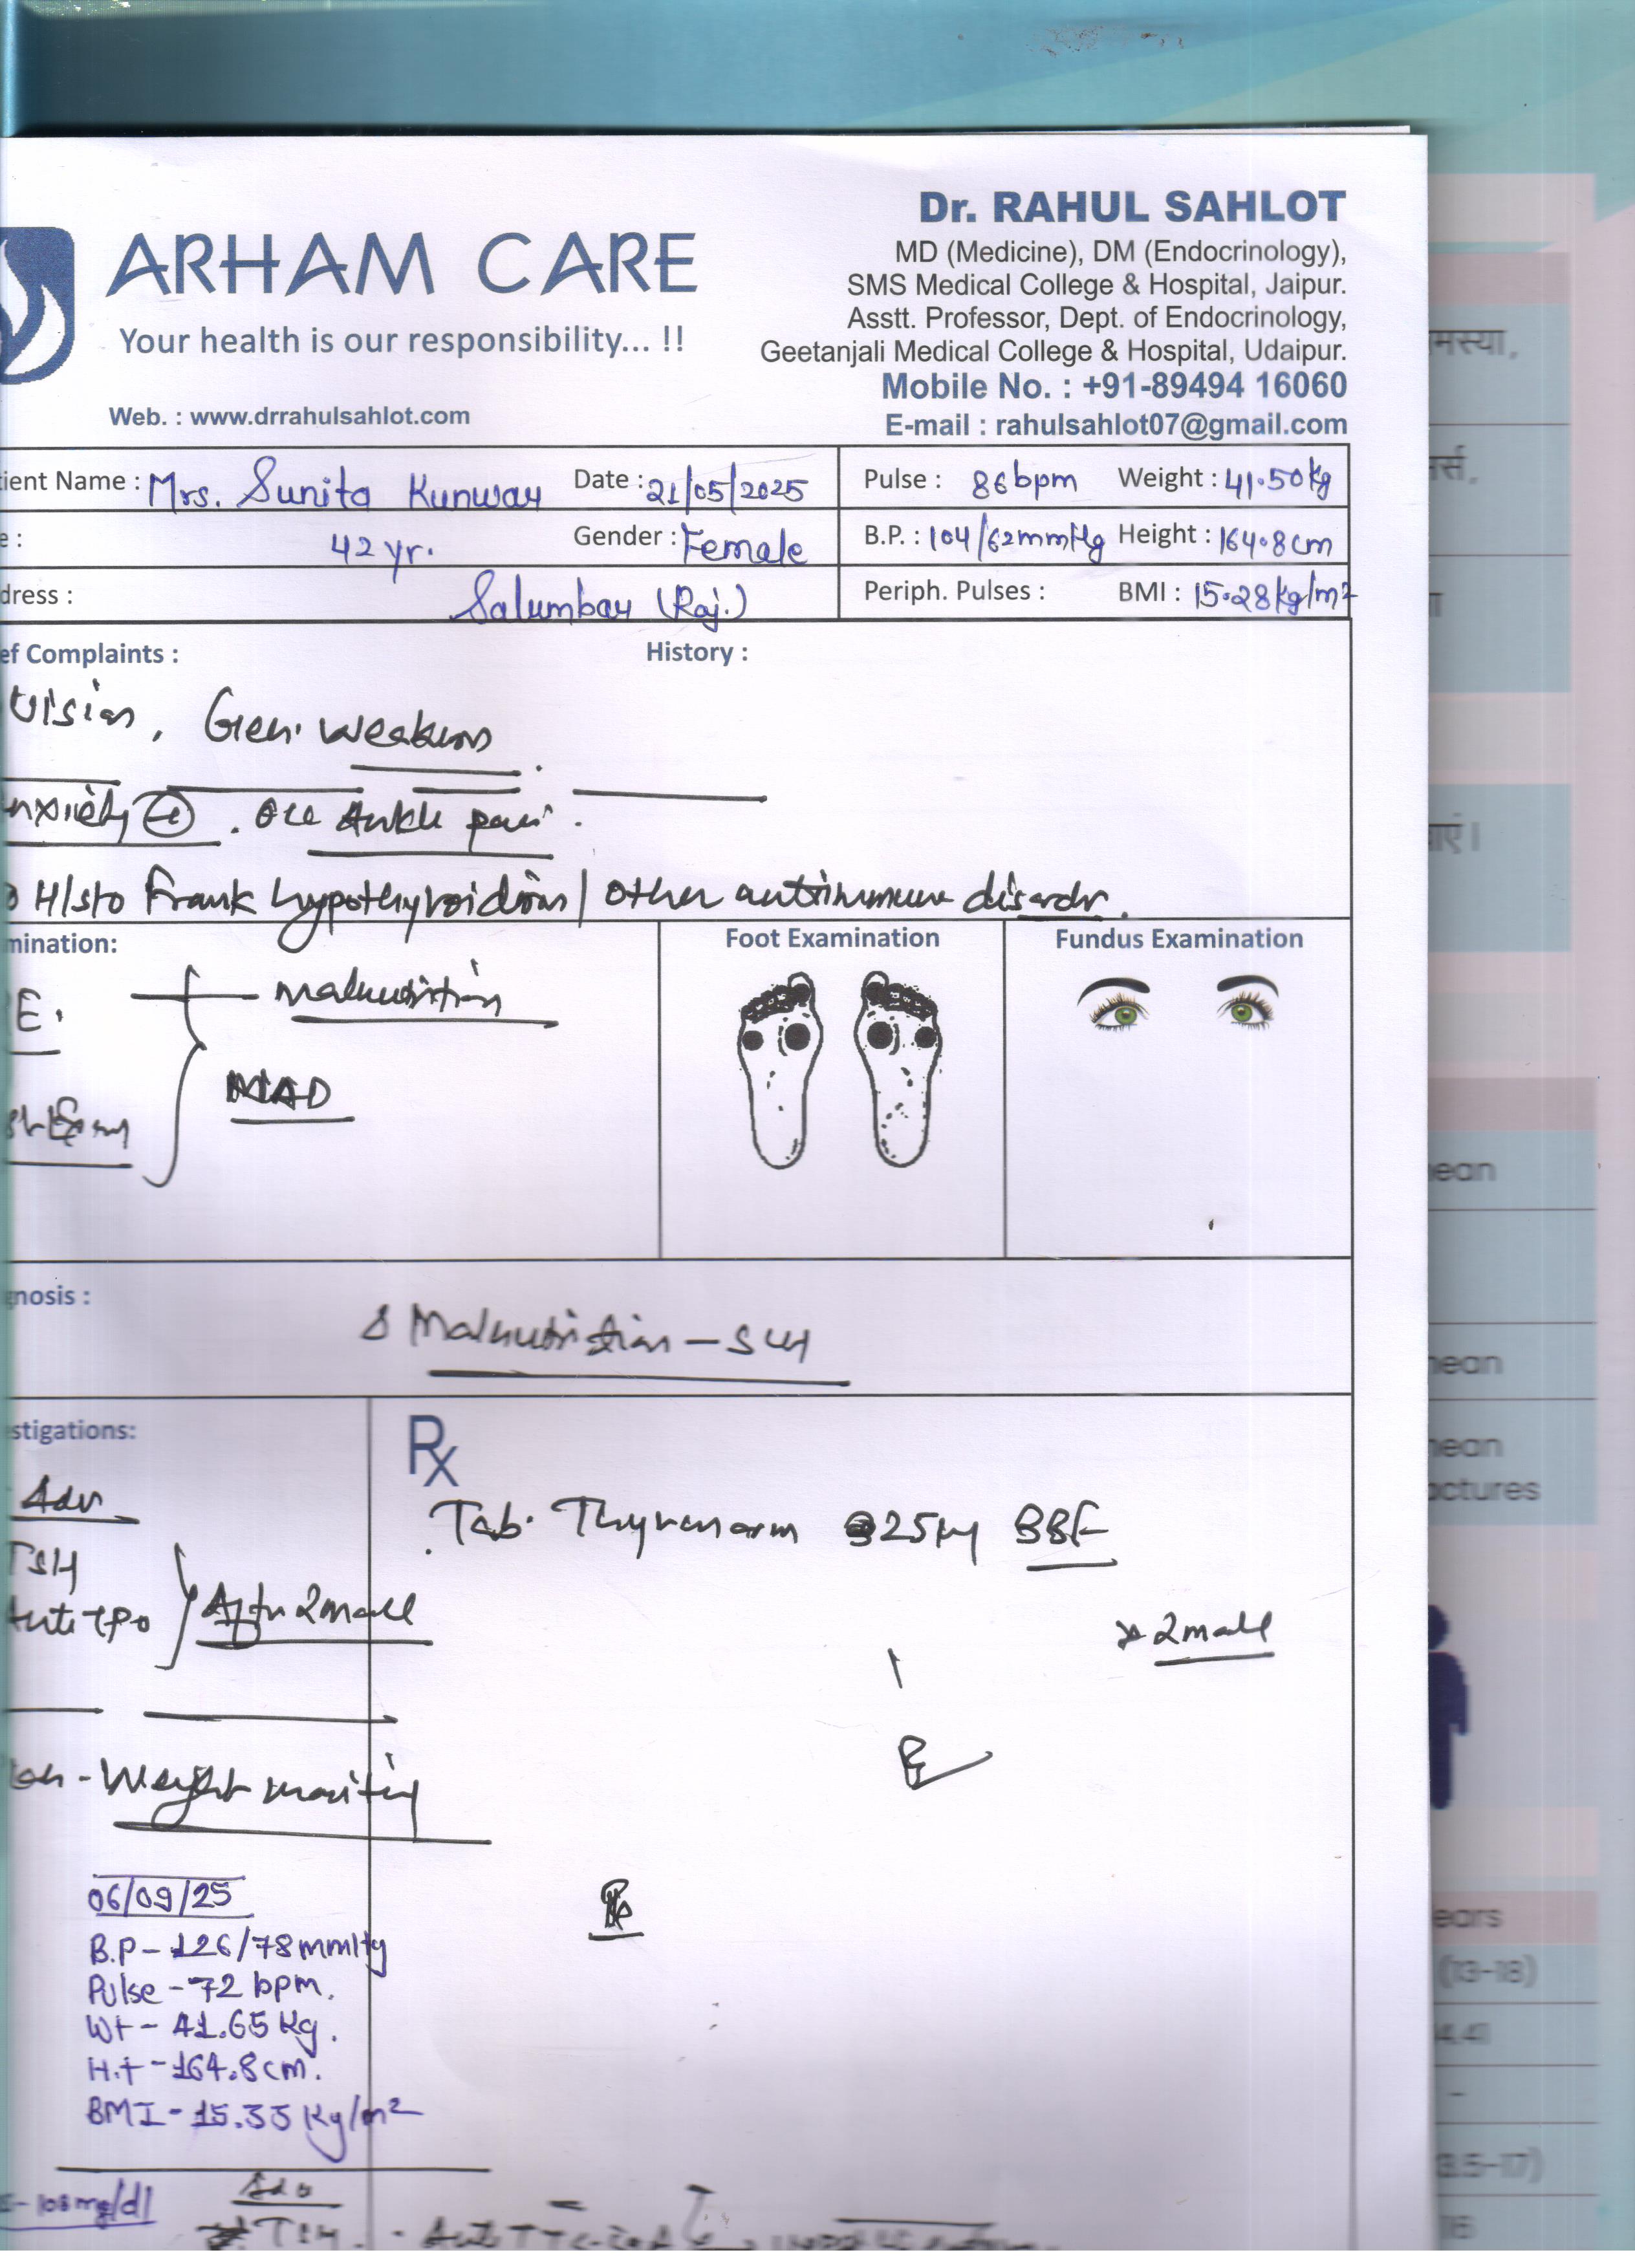 Dr. RAHUL SAHLOT
MD (Medicine), DM (Endocrinology),
SMS Medical College & Hospital, Jaipur.
Asstt. Professor, Dept. of Endocrinology,
Geetanjali Medical College & Hospital, Udaipur.
Mobile No. : +91-89494 16060
E-mail : rahulsahlot07@gmail.com
ARHAM CARE
Your health is our responsibility... !!
Web. : www.drrahulsahlot.com
ient Name : Mrs. Sunita Kunwar Date : 21/05/2025 Pulse : 86 bpm Weight : 41.50kg
e : 42 yr. Gender : Female B.P. : 104/62mmHg Height : 164.8cm
dress : Salumbar (Raj.) Periph. Pulses : BMI : 15.28kg/m²
ef Complaints : History :
Gen. weakness
nxiety . Ankle pain.
H/s/o Frank hypothyroidism / other autoimmune disorder.
mination: Foot Examination Fundus Examination
E. Malnutrition
NAD
nosis :
Malnutrition - SCH
stigations: Rx
Adv
Tab. Thyronorm 25 BBF
TSH
Anti tpo
After 2
2
- Weight
06/09/25
B.P - 126/78 mmHg
Pulse - 72 bpm.
Wt - 41.65 Kg.
H.t - 164.8cm.
BMI - 15.33 Kg/m²
- 108 mg/dl
Adv
TSH.
मस्या,
र्स,
ाएं।
ean
nean
nean
actures
ears
(13-18)
4.4)
3.5-17)
16